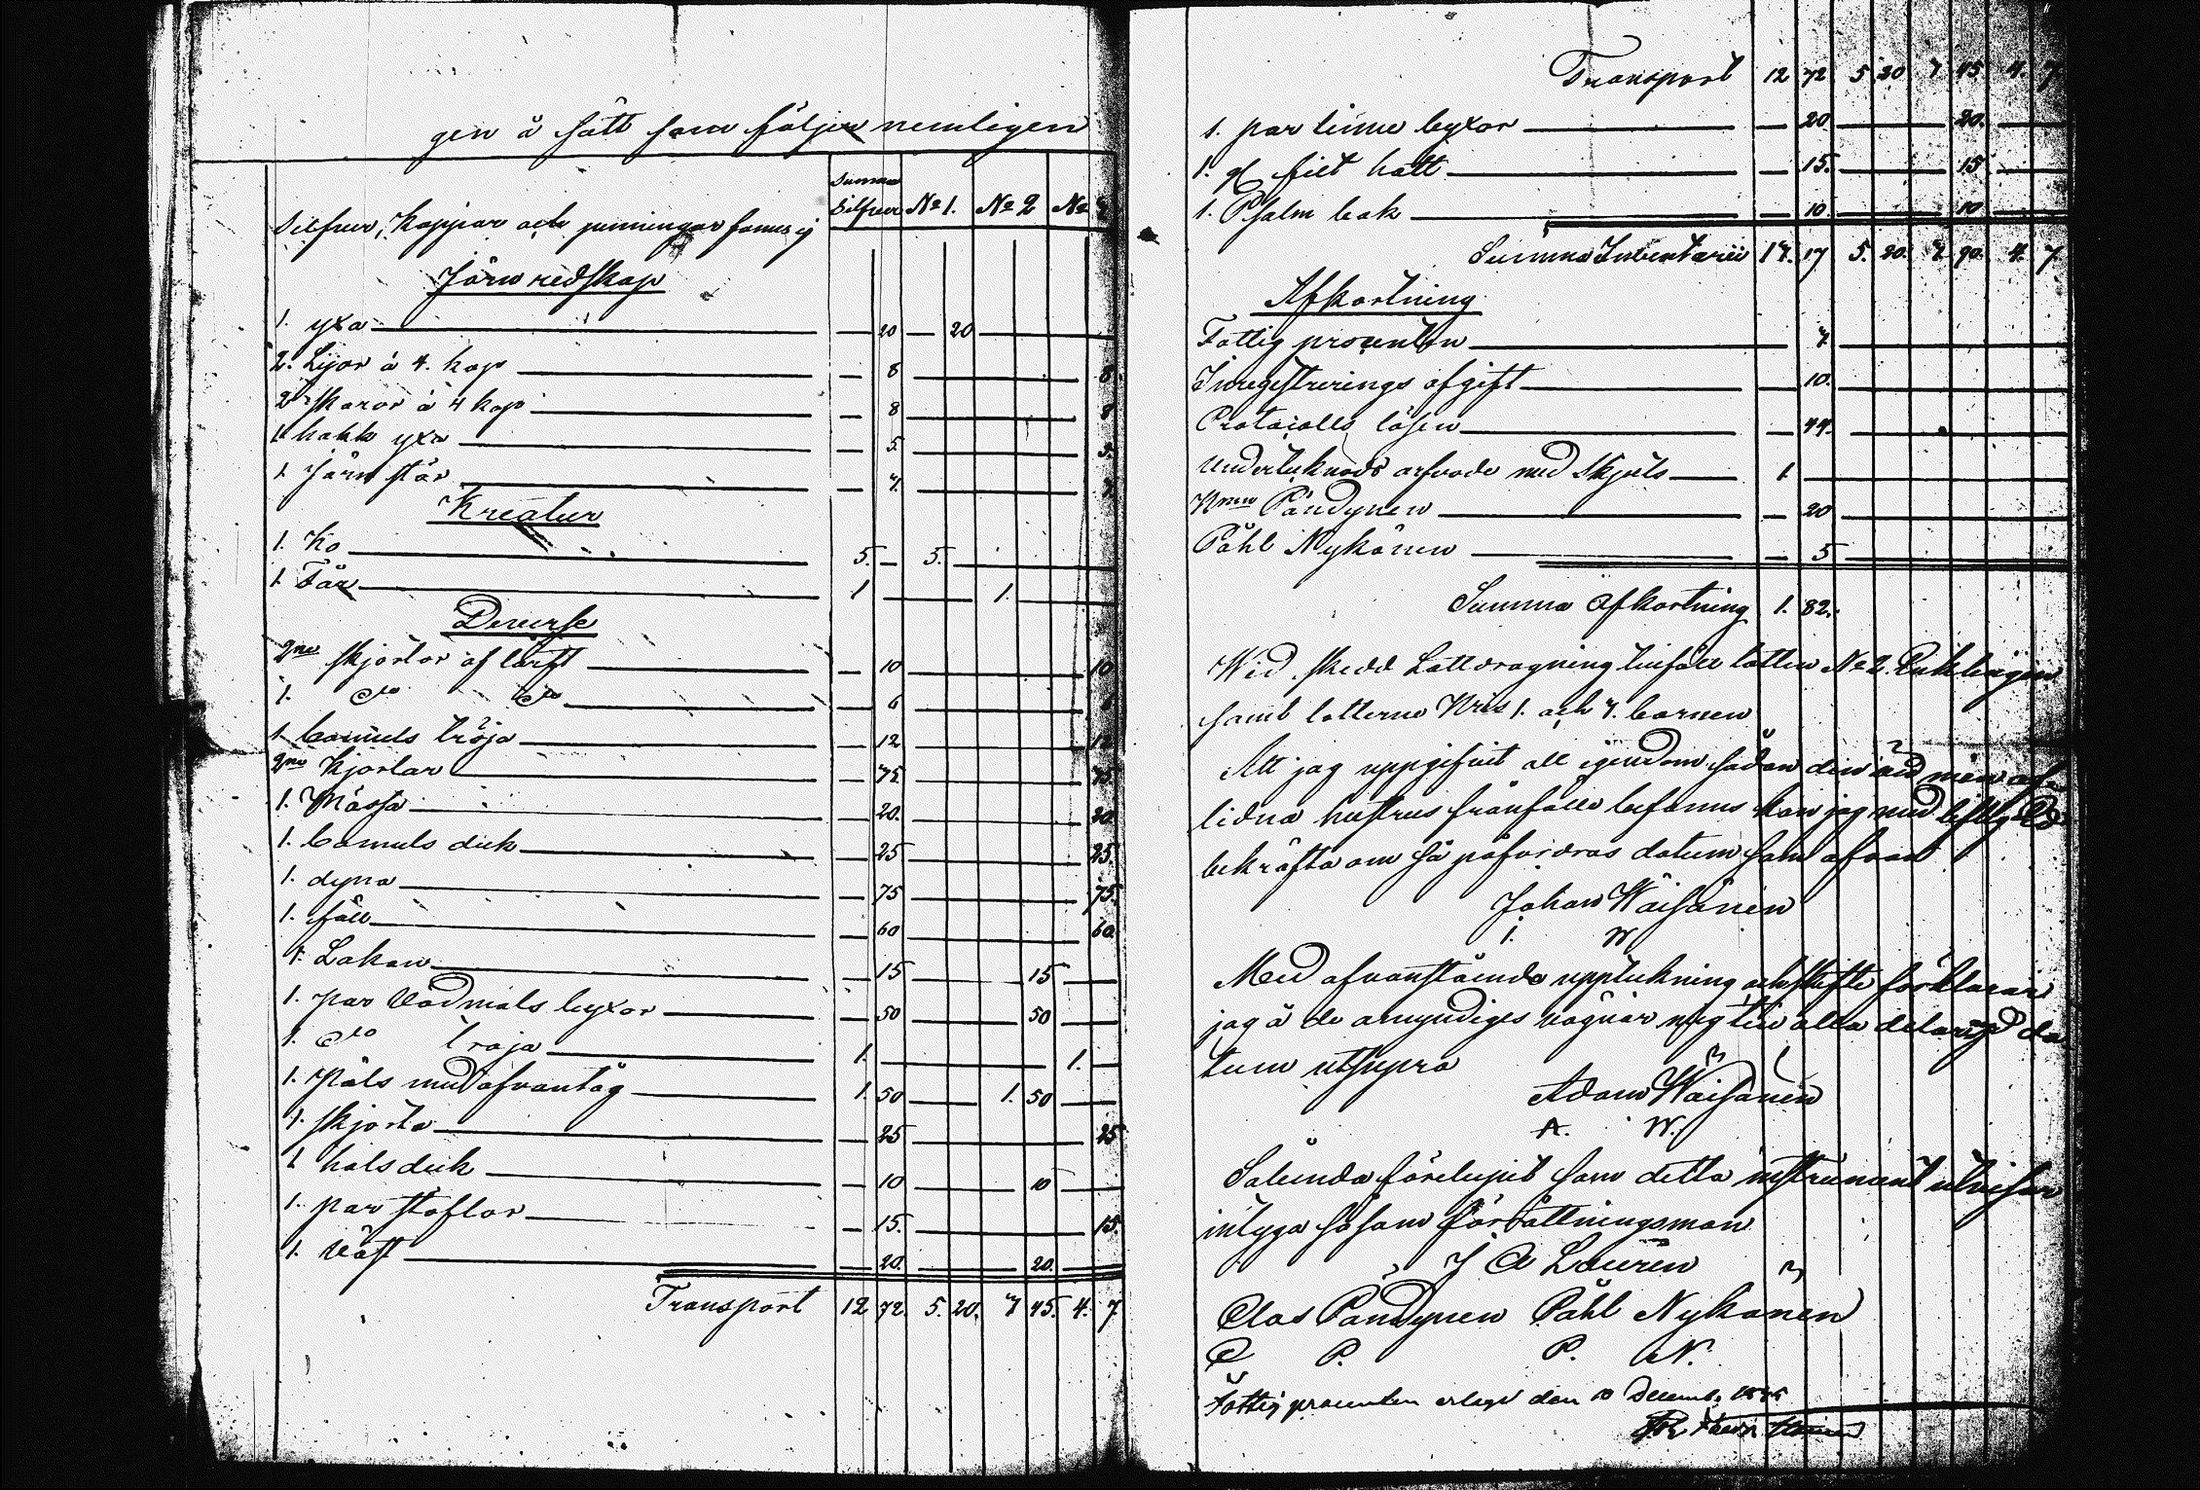 gen å sätt som följer nemligen
Summa
Silfver, Koppar och penningar fanns ej Silfver No 1. No 2 No 3
Järnredskap
1. yxa — 20 — 20
2. Lijor á 4. kop — 8 8.
2 skäror á 4 kop — 8 8
1 hakk yxa — 5 5.
1 järn stör — 7. 7
Kreatur
1. Ko 5. — 5.
1. Får 1 1.
Diverse
2ne skjortor af lärft — 10 10
1. Dto Dto — 6 6
1. Camuls tröja — 12 12
2ne Kjortlar — 75 75
1. Mössa — 20. 20.
1. Camuls duk — 25 25.
1. dyna — 75 75.
1. fäll — 60 60.
1. Lakan — 15 15
1. par Vadmals byxor — 50 50
1. Dto tröja 1. 1.
1. Päls med ofvantåg 1. 50 1. 50
1. skjorta — 25 25
1 halsduk — 10 10
1. par stöflor — 15. 15.
1. Väst — 20. 20.
Transport 12 72. 5. 20. 7 45. 4. 7.
Transport 12 72 5 20 7 45. 4. 7.
1. par linne byxor — 20 20.
1. gl filt hatt — 15. 15
1. Psalm bok — 10. 10
Summa Inventarii 13. 17 5. 20. 7. 90. 4. 7.
Afkortning
Fattig procenten 7.
Inregistrerings afgift 10.
Protocolls lösen — 44.
Undertecknads arfvode med Skjuts 1.
Pändynen — 20
Påhl Nykänen — 5
Summa Afkortning 1. 82.
Wid skedd Lottdragning tillföll lotten No 2. Enklingen
samt lotterne Nris 1. och 3. barnen
Att jag uppgifvit all egendom sådan den vid min af-
lidna hustrus frånfälle befanns kan jag med liflig Ed
bekräfta om så påfordras datum som ofvan
Johan Wäisänen
J. W
Med ofvanstående uppteckning och skifte förklarar
jag å de omyndiges vägnar mig till alla delar nöjd da
tum utsupra
Adam Wäisänen
A. W.
Sålunda förelupit som detta instrument utvisar
intyga såsom förrättningsman
J A Lauren
Clas Pändynen Påhl Nykänen
C P. P. N.
Fattig procenten erlagd den 10 Decemb.